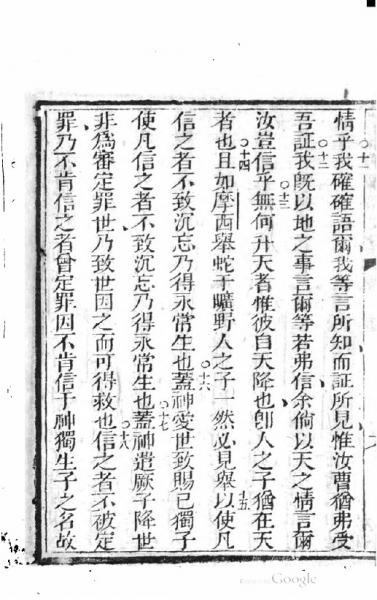 情乎我確確語爾我等言所知而証所見惟汝曹猶弗受
吾証我旣以地之事言爾等若弗信余倘以天之情言爾
汝豈信乎無何升天者惟彼自天降也卽人之子猶在天
者也且如摩西舉蛇于曠野人之子一然必見舉以使凡
信之者不致沉忘乃得永常生也蓋神愛世致賜已獨子
使凡信之者不致沉忘乃得永常生也蓋神遣厥子降世
非為審定罪世乃致世因之而可得救也信之者不被定
罪乃不肯信之者曾定罪因不肯信于神獨生子之名故
○十一
○十二
○十三
○十四
十五
○十六
○十七
○十八
Google